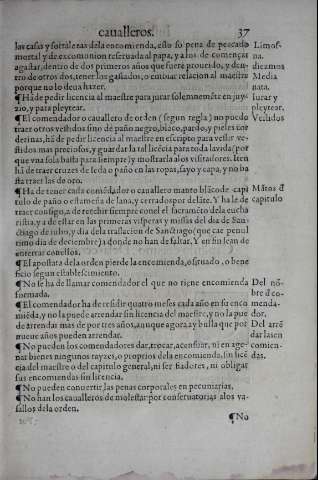 caualleros. 37
las casas y fortalezas dela encomienda, esto so pena de peccado
mortal y de excomunion reseruada al papa, y a los de començar
agastar, dentro de dos primeros años que fuere proueydo, y den
tro de otros dos, tener los gastados, o embiar relacion al maestre
porque no lo deua hazer.
¶Ha de pedir licencia al maestre para jurar solemnemēte en juy-
zio, y para pleytear.
¶El comendador o cauallero de orden (segun regla) no puedo
traer otros vestidos sino de paño negro, blāco, pardo, y pieles cor
derinas, hā de pedir licencia al maestre en escripto para vestir ve-
stidos mas preciados, y guardar la tal licēcia para toda la vida (por
que vna sola basta para siempre) y mostrarla alos visitadores. Iten
hā de traer cruzes de seda o paño en las ropas, sayo y capa, y no ba
sta traer las de oro.
¶Ha de tener cada comēdador o cauallero manto blāco de capi
tulo de paño o estameña de lana, y cerrado por delāte. Y ha le de
traer consigo, a de rescebir siempre con el el sacramēto dela eucha
ristia, y a de estar en las primeras visperas y missas del dia de San-
ctiago de iulio, y dia dela traslacion de Sanctiago (que cae penul
timo dia de deciembre) a donde no han de faltar. Y en fin se an de
enterrar con ellos.
¶El apostata dela orden pierde la encomienda, o situado, o bene
ficio segun establescimiento.
¶No se ha de llamar comendador el que no tiene encomienda
formada.
¶El comendador ha de residir quatro meses cada año en su enco
miēda, y no la puede arrendar sin licencia del maestre, y no la pue
de arrendar mas de por tres años, aunque agora ay bulla que por
nueue años pueden arrendar.
¶No pueden los comendadores dar, trocar, acensuar, ni en age-
nar bienes ningunos rayzes, o proprios dela encomienda, sin licē
cia del maestre o del capitulo general, ni ser fiadores, ni obligar
sus encomiendas sin licencia.
¶No pueden conuertir las penas corporales en pecuniarias.
¶No han los caualleros de molestar por conseruatorias alos va-
sallos dela orden.
¶No
Limos-
na.
diezmos
Media
nata.
Iurar y
pleytear.
Vestidos
Mātos d̄
capitulo
Del nō-
bre d̄ co-
menda-
dor.
Del arrē
dar las en
comien-
das.